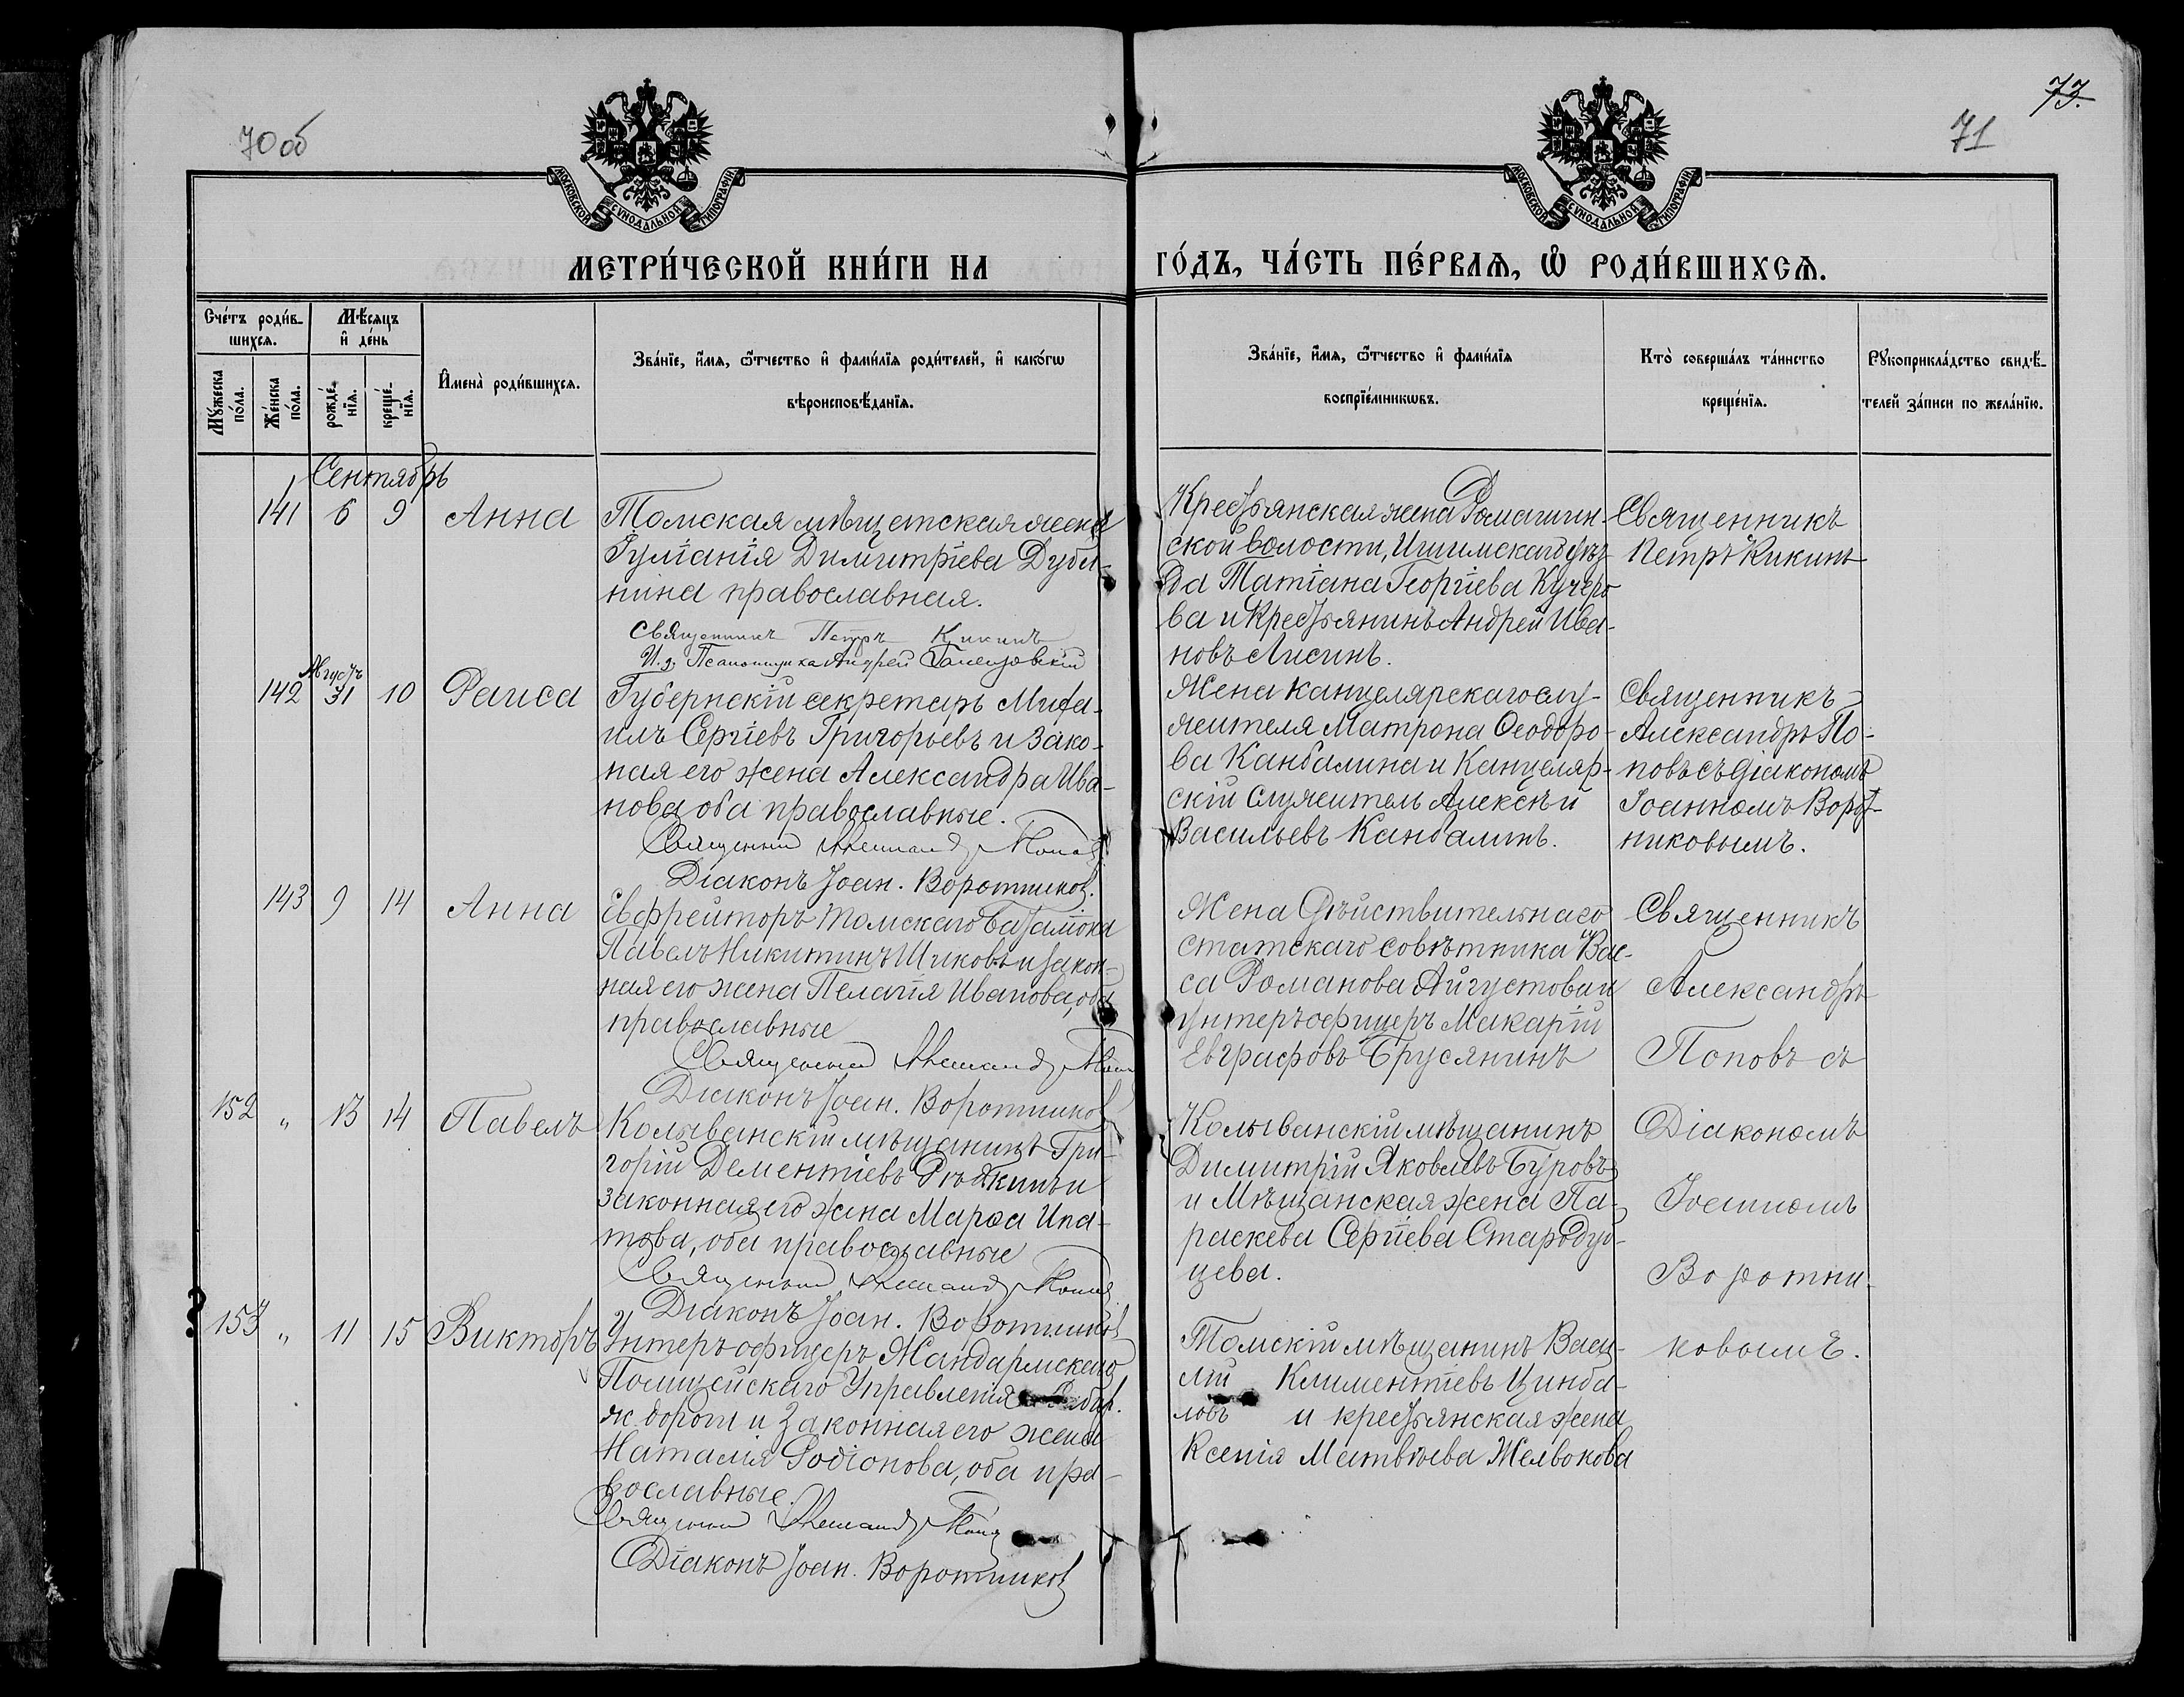 70 об
71
73.
МОСКОВСКОЙ СѴНОДАЛЬНОЙ ТИПОГРАФІИ
МОСКОВСКОЙ СѴНОДАЛЬНОЙ ТИПОГРАФІИ
МЕТРИ́ЧЕСКОЙ КНИ́ГИ НА
ГО́ДЪ, ЧА́СТЬ ПЕ́РВАѦ, Ѡ҆ РОДИ́ВШИХСѦ.
Сче́тъ роди́в-
шихсѧ.
Мꙋ́жеска
по́ла.
Же́нска
по́ла.
Мѣ́сѧцъ
и҆ де́нь
рожде́-
нїѧ.
креще́-
нїѧ.
И҆мена̀ роди́вшихсѧ.
Зва́нїе, и҆́мѧ, ѻ҆́тчество и҆ фами́лїѧ роди́телей, и҆ како́гѡ
вѣроисповѣ́данїѧ.
Зва́нїе, и҆́мѧ, ѻ҆́тчество и҆ фами́лїѧ
воспрїе́мникѡвъ.
Кто̀ соверша́лъ та́инство
креще́нїѧ.
Рꙋкоприкла́дство свидѣ́-
телей за́писи по жела́нїю.
Сентябрь
141 6 9 Анна
Томская мѣщанская жена
Іуліанія Димитріева Дуби-
нина православная.
Священникъ Петръ Кикинъ
И. д. Псаломщика Андрей
Крестьянская жена Ромашин-
ской волости, Ишимскаго уѣз-
да Татіана Георгіева Кучеро
ва и Крестьянинъ Андрей Ива-
новъ Лисинъ.
Священникъ
Петръ Кикинъ
142 Августъ 31 10 Раиса
Губернскій секретарь Миха-
илъ Сергіевъ Григорьевъ и зако-
ная его жена Александра Ива-
нова оба православные.
Священник Александр Попов
Діаконъ Іоан. Воротников.
Жена канцелярскаго слу-
жителя Матрона Ѳеодоро-
ва Кандалина и Канцеляр-
скій служитель Алексѣй
Васильевъ Кандалинъ.
Священникъ
Александръ По-
повъ съ діакономъ
Іоанномъ Ворот-
никовымъ.
143 9 14 Анна
Ефрейторъ Томскаго Баталіона
Павелъ Никитинъ Шиковъ и закон-
ная его жена Пелагія Иванова, оба
православные
Священник Александр Попов
Діаконъ Іоан. Воротников
Жена Дѣйствительнаго
статскаго совѣтника Вас-
са Романова Айгустова и
унтеръ офицеръ Макарій
Евграфовъ Брусянинъ
Священникъ
Александръ
Поповъ съ
Діакономъ
Іоанномъ
Воротни-
ковымъ.
152 „ 13 14 Павелъ
Колыванскій мѣщанинъ Гри-
горій Дементіевъ Рѣпкинъ и
законная его жена Марѳа Ипа-
това, оба православные
Священник Александр Попов
Діаконъ Іоан. Воротников
Колыванскій мѣщанинъ
Димитрій Яковлевъ Буровъ
и Мѣщанская жена Па-
раскева Сергіева Стародуб-
цева.
153 „ 11 15 Викторъ
Унтеръ офицеръ Жандармскаго
Полицейскаго Управленія Сибир.
ж. дороги и законная его жена
Наталія Родіонова, оба пра-
вославные.
Священник Александр Попов
Діаконъ Іоан. Воротников
Томскій мѣщанинъ Васи-
лій Климентіевъ Цинда-
ловъ и крестьянская жена
Ксенія Матвѣева Желвокова